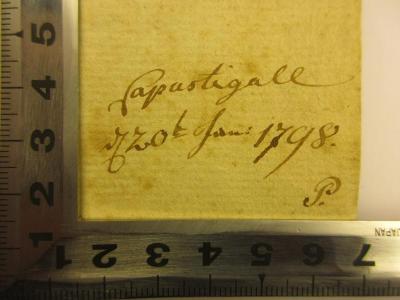 Papustigall
d. 20t Jan: 1798.
P.
1 2 3 4 5
1 2 3 4 5 6 7
JAPAN